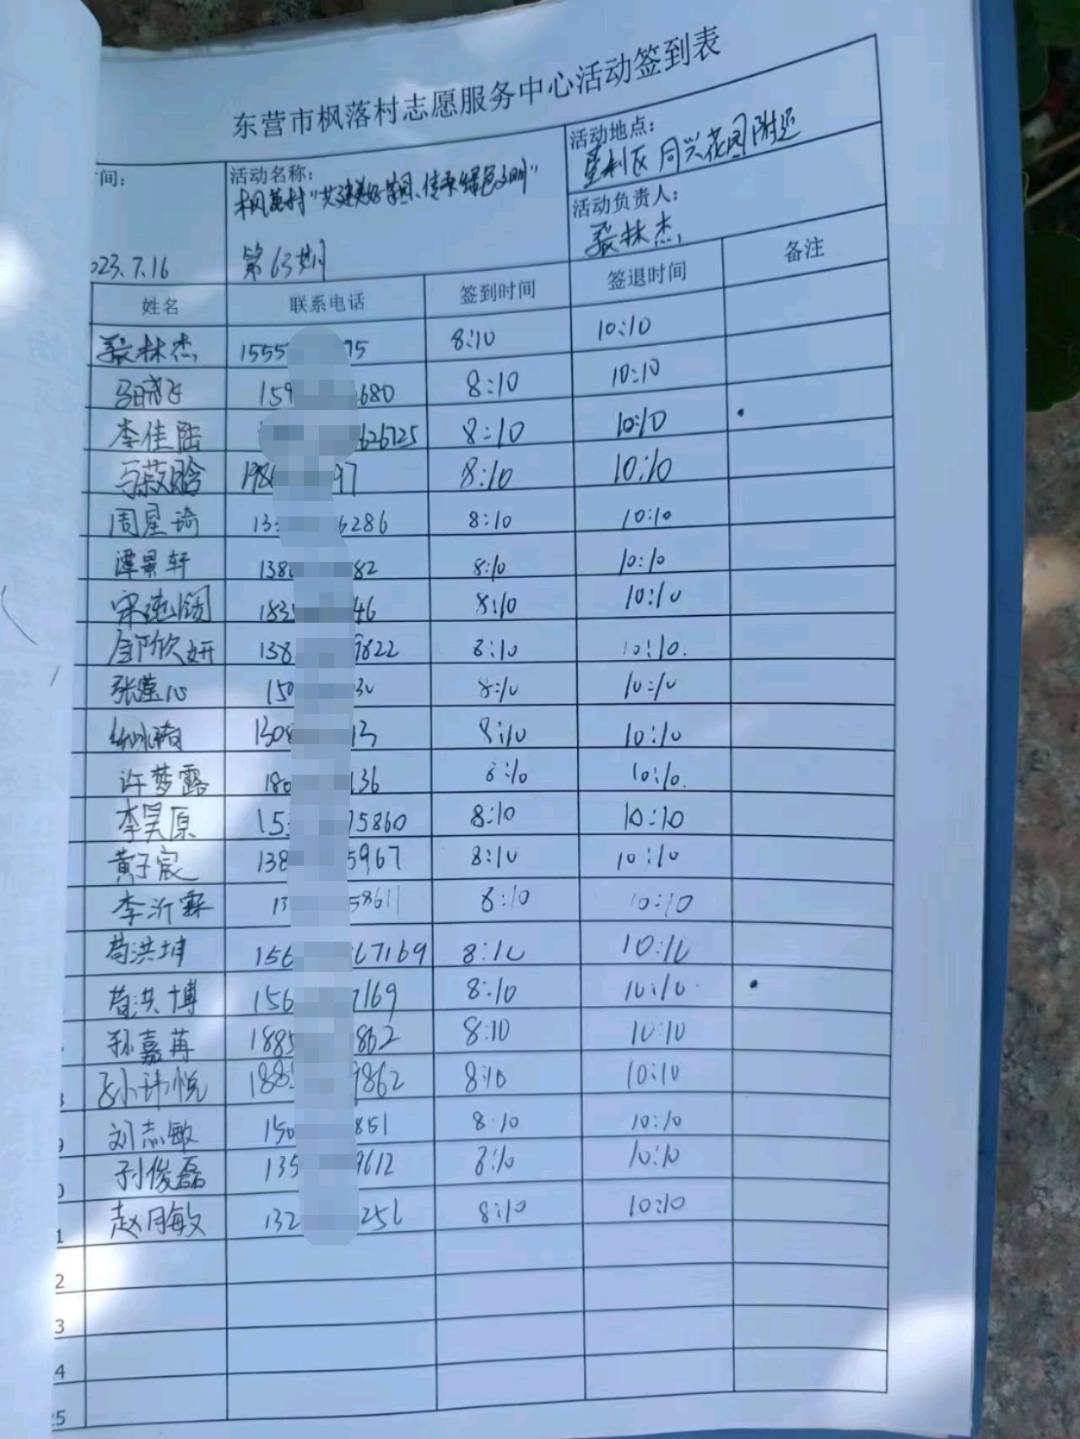 东营市枫落村志愿服务中心活动签到表
间:
023.7.16
活动名称:
枫落村"共建美好家园、传承绿色文明"
第63期
活动地点:
垦利区 同兴花园附近
活动负责人:
张林杰
姓名 联系电话 签到时间 签退时间 备注
张林杰 1555 95 8:10 10:10
159 680 8:10 10:10
李佳陆 626725 8:10 10:10
198 97 8:10 10:10
周星琦 13 6286 8:10 10:10
谭景轩 138 82 8:10 10:10
183 46 8:10 10:10
欣妍 138 9822 8:10 10:10
张 心 150 30 8:10 10:10
1308 13 8:10 10:10
许梦露 180 136 8:10 10:10
李昊原 15 75860 8:10 10:10
黄子宸 138 5967 8:10 10:10
李沂霖 13 58611 8:10 10:10
苟洪坤 156 67169 8:10 10:10
苟洪博 156 7169 8:10 10:10
孙嘉苒 1885 862 8:10 10:10
188 9862 8:10 10:10
刘志敏 150 851 8:10 10:10
孙俊磊 135 9612 8:10 10:10
1 赵月敏 132 256 8:10 10:10
2
3
4
25